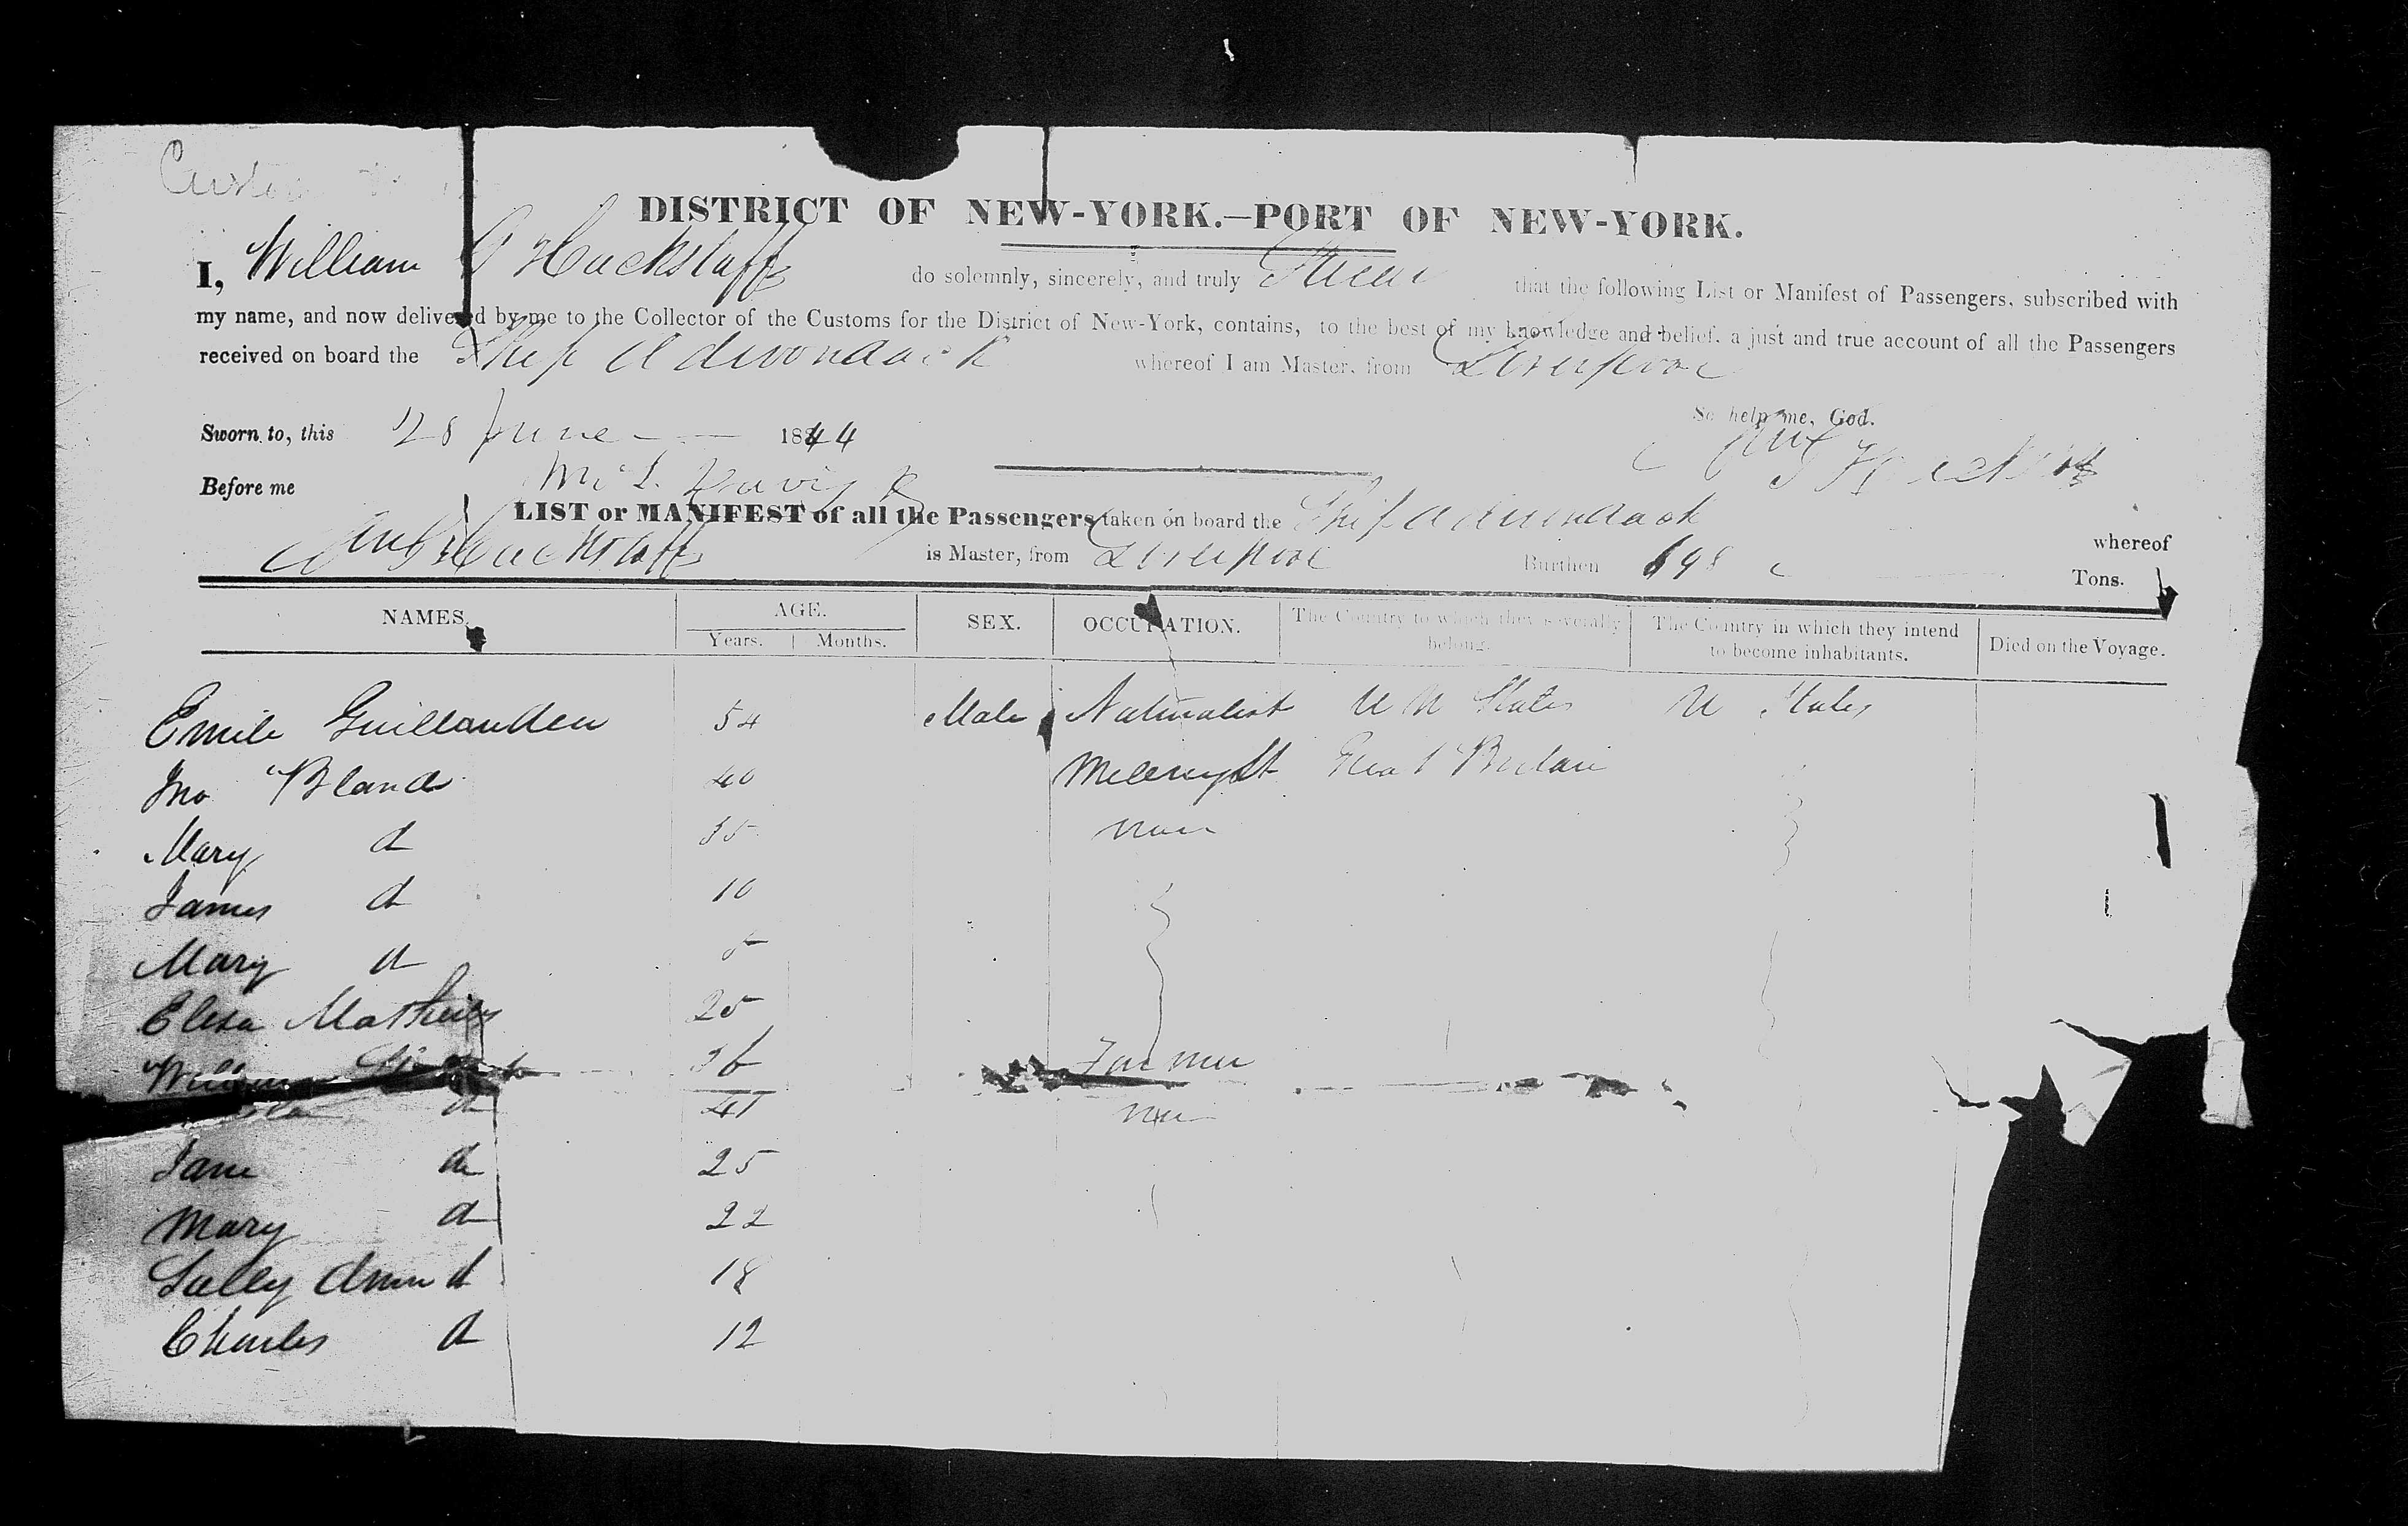 DISTRICT OF NEW-YORK.—PORT OF NEW-YORK.
I, William G Hackstaff do solemnly, sincerely, and truly Swear that the following List or Manifest of Passengers, subscribed with
my name, and now delivered by me to the Collector of the Customs for the District of New-York, contains, to the best of my knowledge and belief, a just and true account of all the Passengers
received on board the Ship Adirondack whereof I am Master, from Liverpool
So help me, God.
Sworn to, this 28 June 1844
Before me
LIST or MANIFEST of all the Passengers taken on board the Ship Adirondack whereof
Hackstaff is Master, from Liverpool Burthen 698 Tons.
NAMES. AGE. SEX. OCCUPATION. The Country to which they severally belong. The Country in which they intend to become inhabitants. Died on the Voyage.
Years. Months.
Emile 54 Male Naturalist U States U States
Jno Bland 40 Great Britain
Mary d 35 none
James d 10
Mary d 5
Eliza Mathews 25
William 36 Farmer
d none
Jane d 25
Mary d 22
Sally Ann d 18
Charles d 12